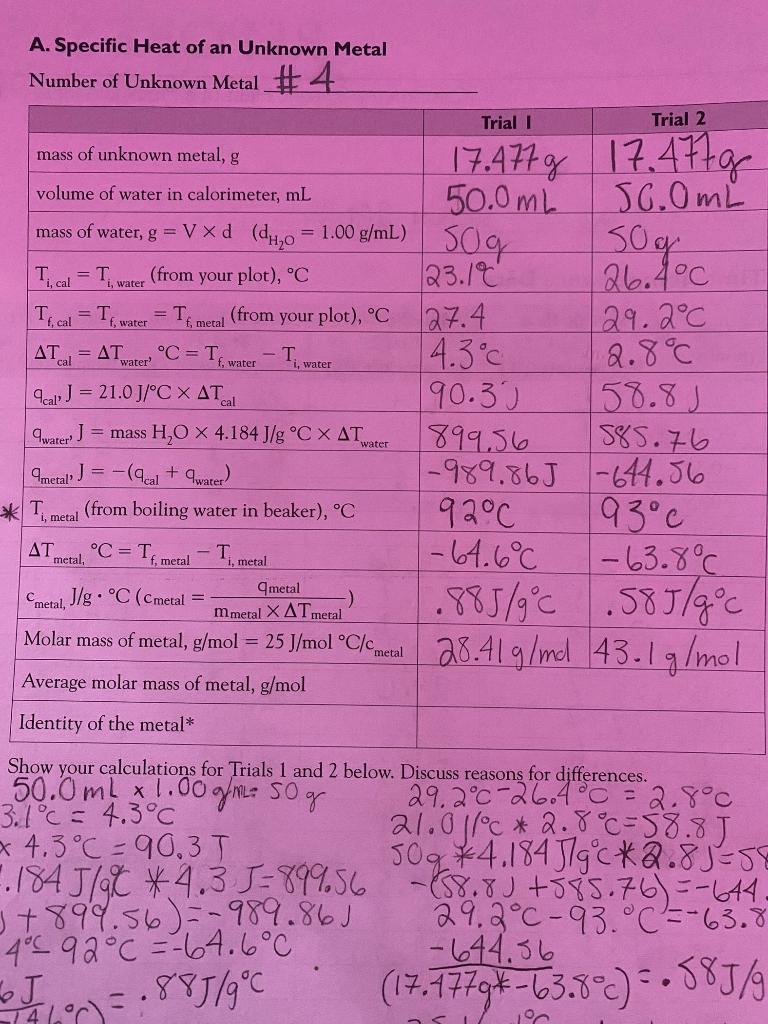 A. Specific Heat of an Unknown Metal
Number of Unknown Metal # 4
Trial 1 Trial 2
mass of unknown metal, g 17.477g 17.477g
volume of water in calorimeter, mL 50.0 mL 50.0 mL
mass of water, g = V × d (dH₂O = 1.00 g/mL) 50g 50g
Ti, cal = Ti, water (from your plot), °C 23.1°C 26.4°C
Tf, cal = Tf, water = Tf, metal (from your plot), °C 27.4 29.2°C
ΔTcal = ΔTwater, °C = Tf, water − Ti, water 4.3°C 2.8°C
qcal, J = 21.0 J/°C × ΔTcal 90.3J 58.8J
qwater, J = mass H₂O × 4.184 J/g °C × ΔTwater 899.56 585.76
qmetal, J = −(qcal + qwater) -989.86J -644.56
* Ti, metal (from boiling water in beaker), °C 92°C 93°C
ΔTmetal, °C = Tf, metal − Ti, metal -64.6°C -63.8°C
cmetal, J/g • °C (cmetal = qmetal / mmetal × ΔTmetal) .88J/g°C .58J/g°C
Molar mass of metal, g/mol = 25 J/mol °C/cmetal 28.41g/mol 43.1g/mol
Average molar mass of metal, g/mol
Identity of the metal*
Show your calculations for Trials 1 and 2 below. Discuss reasons for differences.
50.0mL x 1.00g/mL= 50g 29.2°C-26.4°C = 2.8°C
3.1°C = 4.3°C 21.0J/°C * 2.8°C=58.8J
x 4.3°C = 90.3J 50g*4.184J/g°C*2.8J=58
.184 J/g°C *4.3J=899.56 -(58.8J+585.76)=-644.
+899.56)=-989.86J 29.2°C-93.°C=-63.8
4°C-92°C=-64.6°C -644.56
J = .88J/g°C (17.477g*-63.8°C)=.58J/g